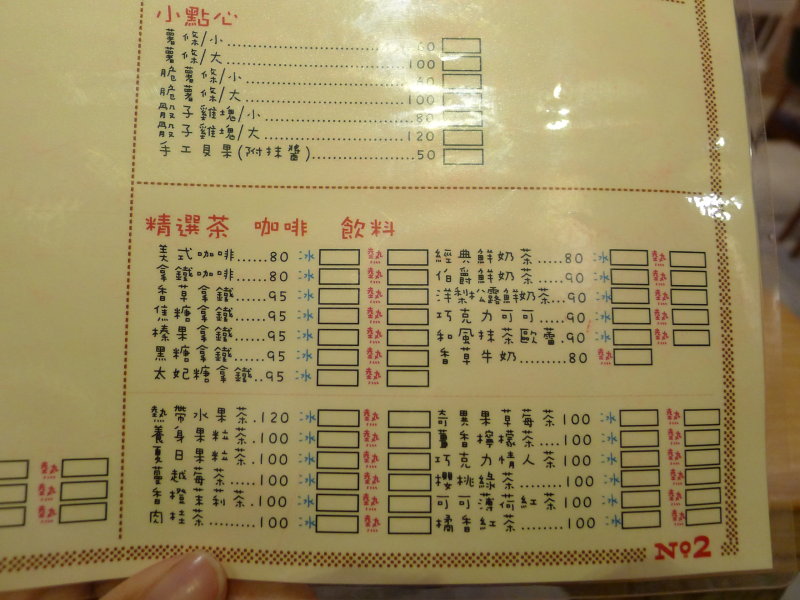 小點心
薯條/小 60
薯條/大 100
脆薯條/小
脆薯條/大 100
骰子雞塊/小 80
骰子雞塊/大 120
手工貝果(附抹醬) 50
精選茶 咖啡 飲料
美式咖啡 80 冰 熱
拿鐵咖啡 80 冰 熱
香草拿鐵 95 冰 熱
焦糖拿鐵 95 冰 熱
榛果拿鐵 95 冰 熱
黑糖拿鐵 95 冰 熱
太妃糖拿鐵 95 冰 熱
經典鮮奶茶 80 冰 熱
伯爵鮮奶茶 90 冰 熱
洋梨松露鮮奶茶 90 冰 熱
巧克力可可 90 冰 熱
和風抹茶歐蕾 90 冰 熱
香草牛奶 80 熱
熱帶水果茶 120 冰 熱
養身果粒茶 100 冰 熱
夏日果粒茶 100 冰 熱
蔓越莓茶 100 冰 熱
香橙茉莉茶 100 冰 熱
肉桂茶 100 冰 熱
奇異果草莓茶 100 冰 熱
薑香檸檬茶 100 冰 熱
巧克力情人茶 100 冰 熱
櫻桃綠茶 100 冰 熱
可可薄荷紅茶 100 冰 熱
橘香紅茶 100 冰 熱
熱
熱
熱
No2